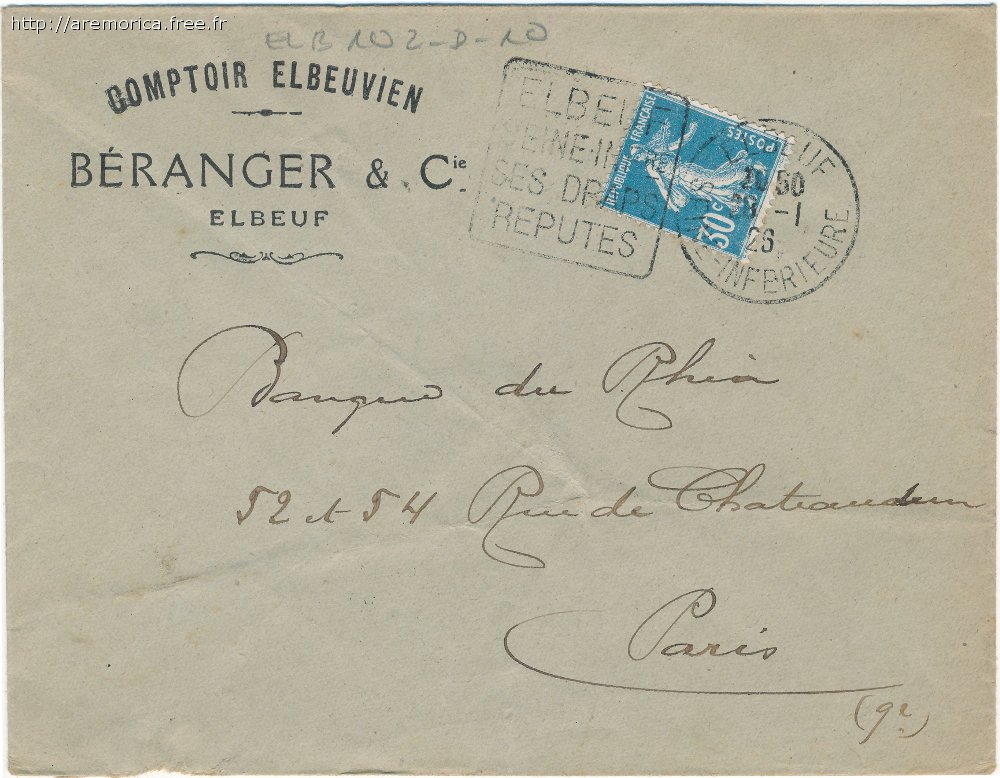 http://aremorica.free.fr
ELB 102-D-10
COMPTOIR ELBEUVIEN
BÉRANGER & Cie
ELBEUF
ELBEUF
SEINE-INFRE
SES DRAPS
REPUTES
REPUBLIQUE FRANÇAISE
POSTES
30c
ELBEUF
50
-1
26
SEINE-INFERIEURE
Banque du Rhin
52 et 54 Rue de Chateaudun
Paris
(9e)